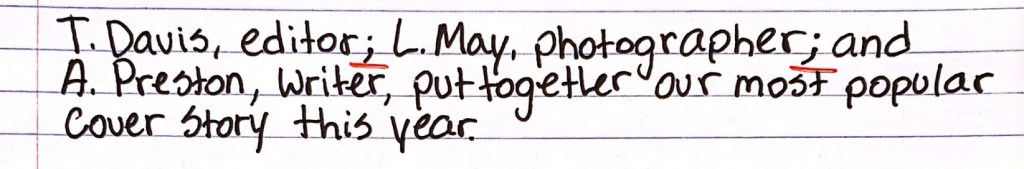 T. Davis, editor; L. May, photographer; and
A. Preston, writer, put together our most popular
cover story this year.